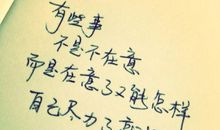 有些事
不是不在意
而是在意了又能怎样
自己尽力了